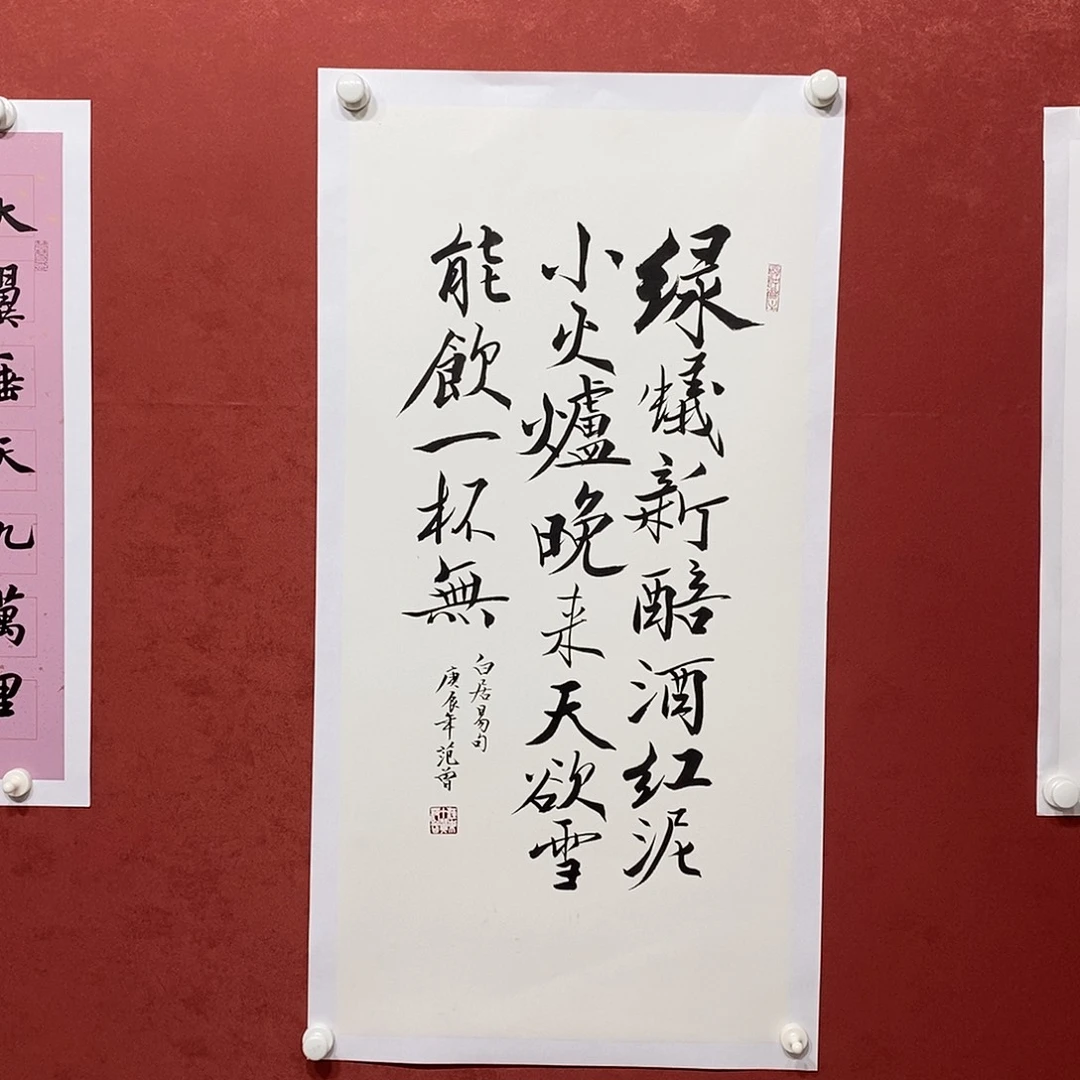 绿蟻新醅酒红泥
小火爐晚来天欲雪
能飲一杯無
白居易句
庚辰年范曾
大翼垂天九萬里